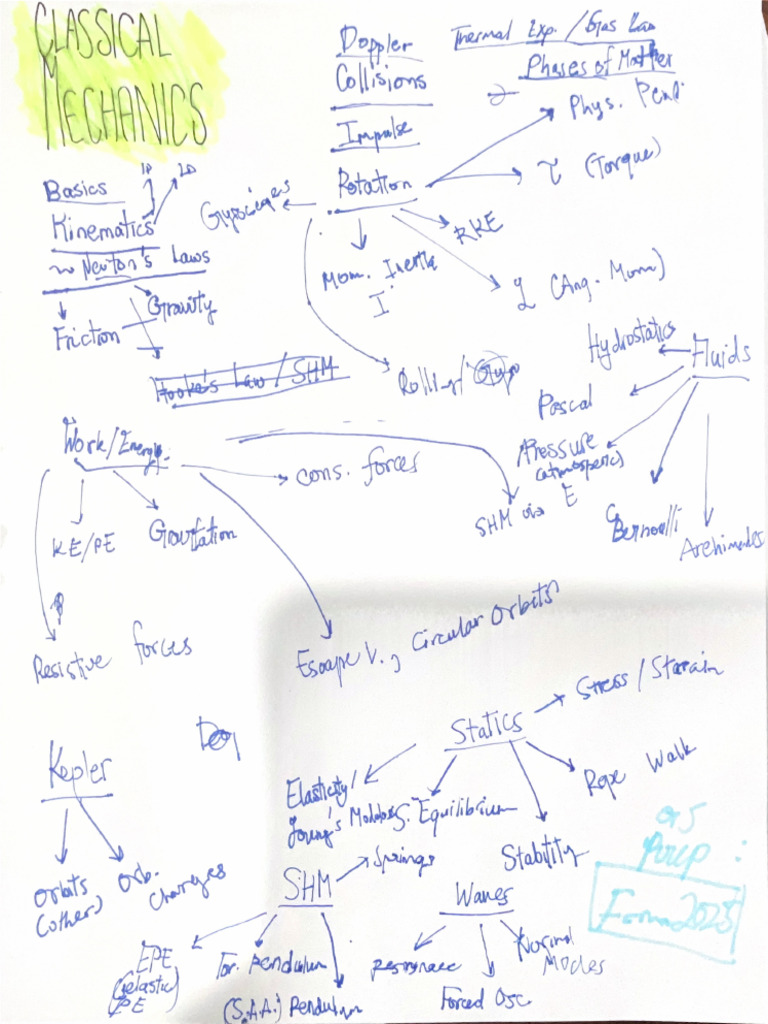 CLASSICAL
MECHANICS
Doppler
Collisions
Impulse
Rotation
Thermal Exp. / Gas Law
Phases of Matter
Phys. Pend.
τ (Torque)
RKE
L (Ang. Mom)
Mom. Inertia
I
Rolling/
Basics
1D
2D
Kinematics
Newton's Laws
Friction
Gravity
Hooke's Law / SHM
Fluids
Hydrostatics
Pascal
Pressure
(atmospheric)
Bernoulli
Archimedes
Work/Energy
cons. forces
SHM via E
KE/PE
Gravitation
Resistive forces
Escape V., Circular Orbits
Kepler
Orbits
(other)
Orb.
changes
Statics
Stress / Strain
Rope Walk
Elasticity/
Young's Modulus
S. Equilibrium
Stability
SHM
Springs
EPE
(elastic
PE)
Tor. Pendulum
(S.A.A.) Pendulum
Waves
Normal
Modes
Forced Osc
Prep :